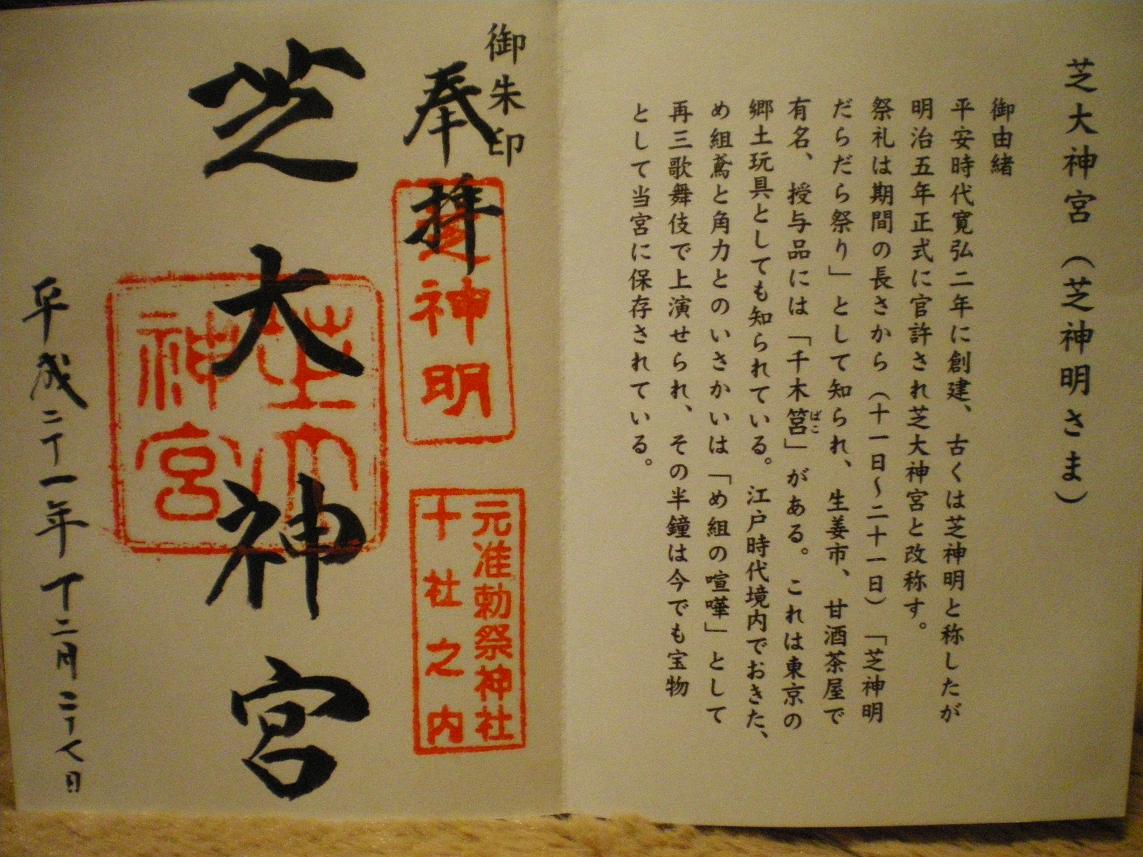 芝大神宮（芝神明さま）
御由緒
平安時代寛弘二年に創建、古くは芝神明と称したが
明治五年正式に官許され芝大神宮と改称す。
祭礼は期間の長さから（十一日～二十一日）「芝神明
だらだら祭り」として知られ、生姜市、甘酒茶屋で
有名、授与品には「千木筥」がある。これは東京の
ばこ
郷土玩具としても知られている。江戸時代境内でおきた、
め組鳶と角力とのいさかいは「め組の喧嘩」として
再三歌舞伎で上演せられ、その半鐘は今でも宝物
として当宮に保存されている。
御朱印
奉拝
芝神明
元准勅祭神社
十社之内
芝大神宮
芝大
神宮
平成二十一年十二月二十八日